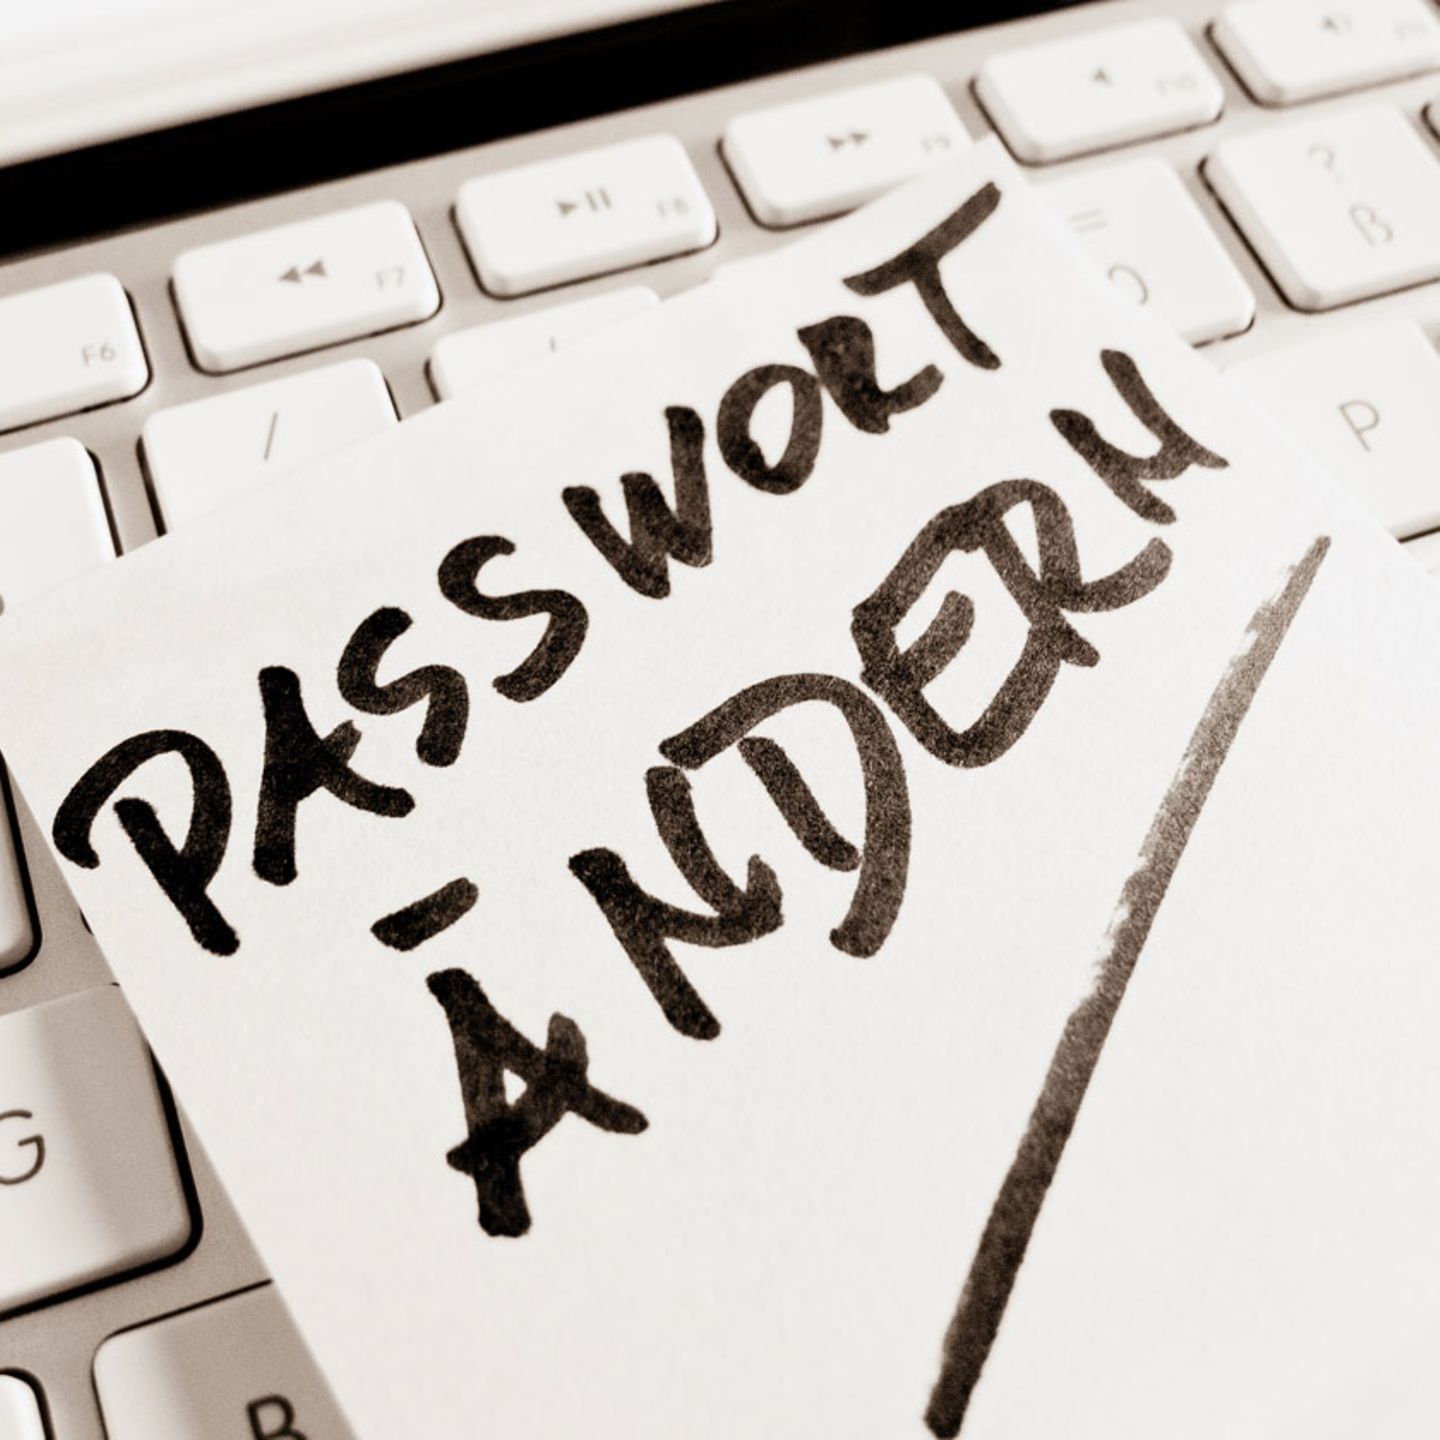 F6
F7
F8
F9
F10
/
=
?
ß
P
PASSWORT
ÄNDERN
G
B